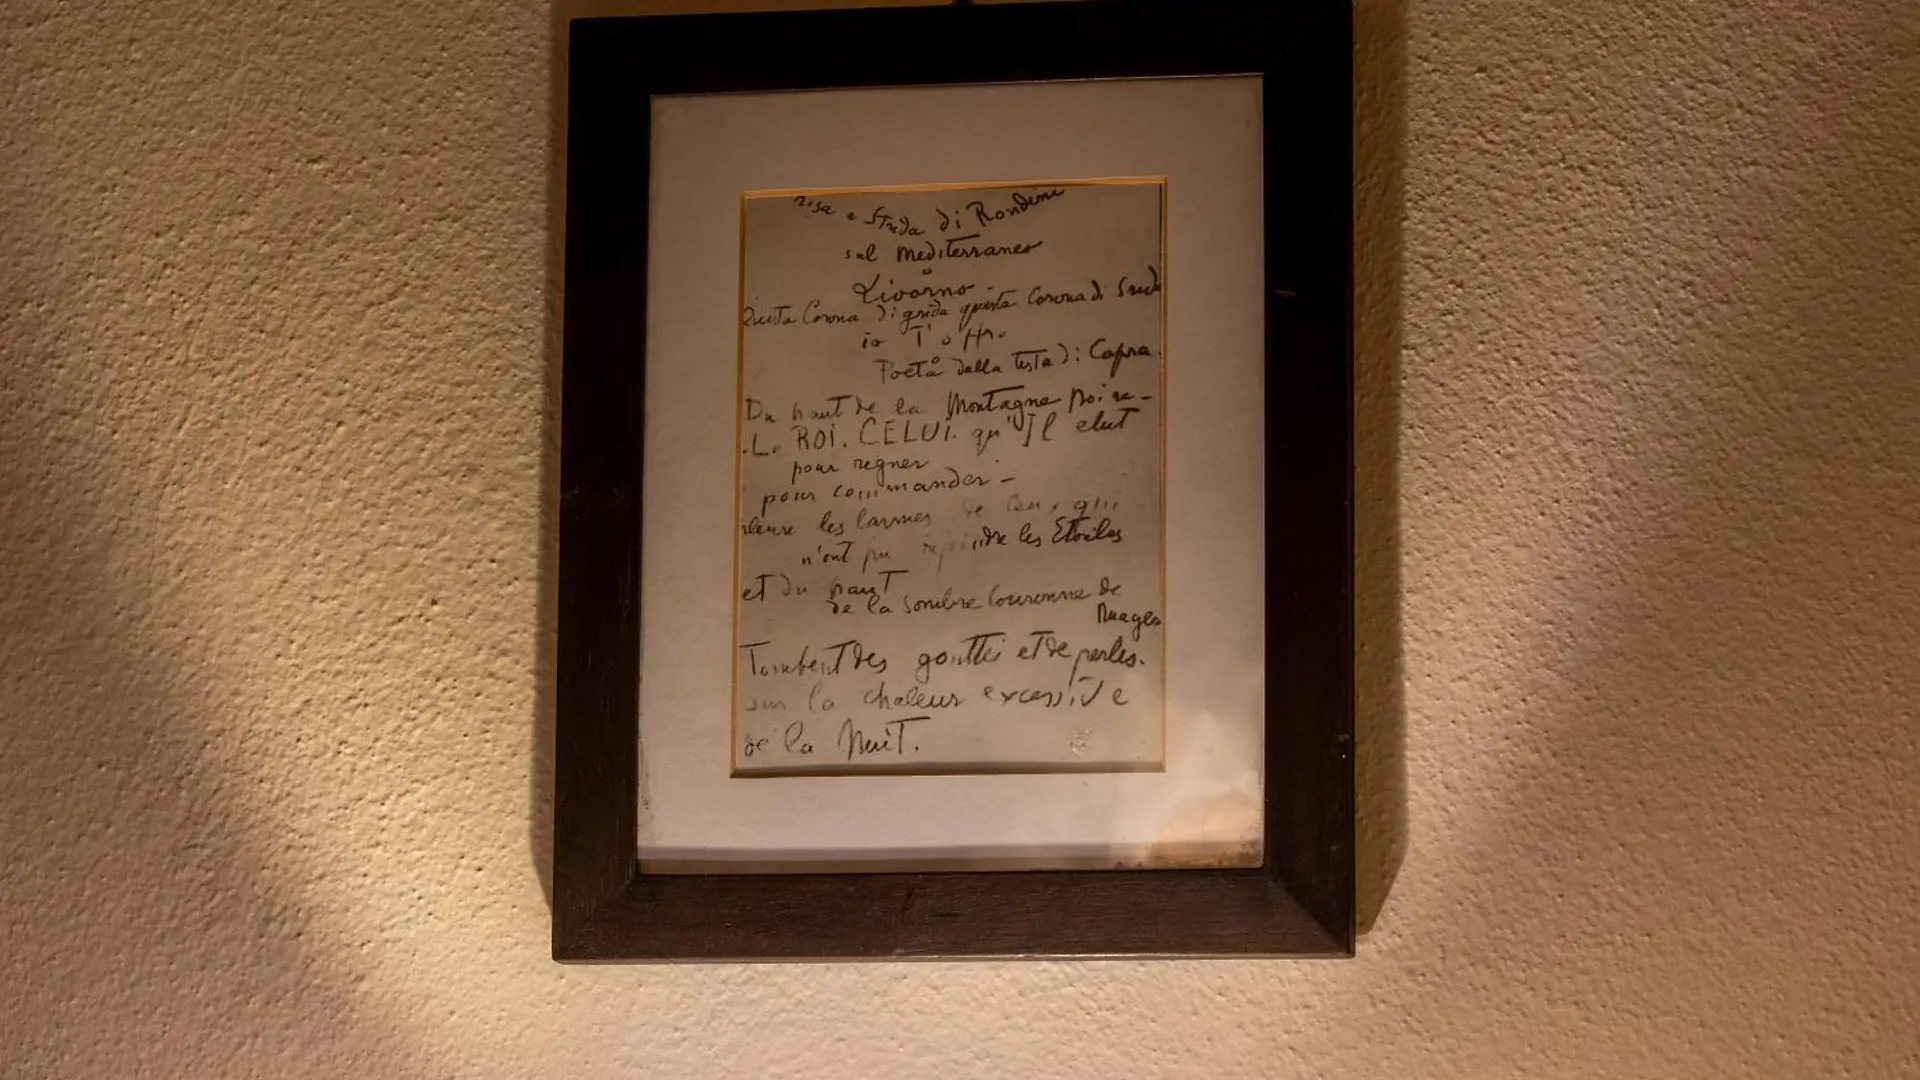 risa e Strida di Rondine
sul Mediterraneo
o
Livorno -
Questa Corona di grida questa Corona di Strida
io T'offro
Poeta dalla testa di Capra.
Du haut de la Montagne Noire -
.Le ROI. CELUI. qu'Il elut
pour regner
pour commander -
pleure les larmes de Ceux qui
n'ont pu rejoindre les Etoiles
et du haut
de la sombre Couronne de
Nuages
Tombent des gouttes et de perles.
sur la chaleur excessive
de la Nuit.